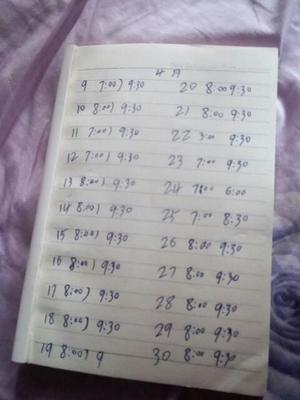 4 A
9 7:00) 9:30 20 8:00 9:30
10 8:00) 9:30 21 8:00 9:30
11 7:00) 9:30 22 3:00 9:30
12 7:00) 9:30 23 7:00 9:30
13 8:00) 9:30 24 7:00 6:00
14 8:00) 9:30 25 7:00 8:30
15 8:00) 9:30 26 8:00 9:30
16 8:00) 9:30 27 8:00 9:30
17 8:00) 9:30 28 8:00 9:30
18 8:00) 9:30 29 8:00 9:30
19 8:00) 9 30 8:00 9:30